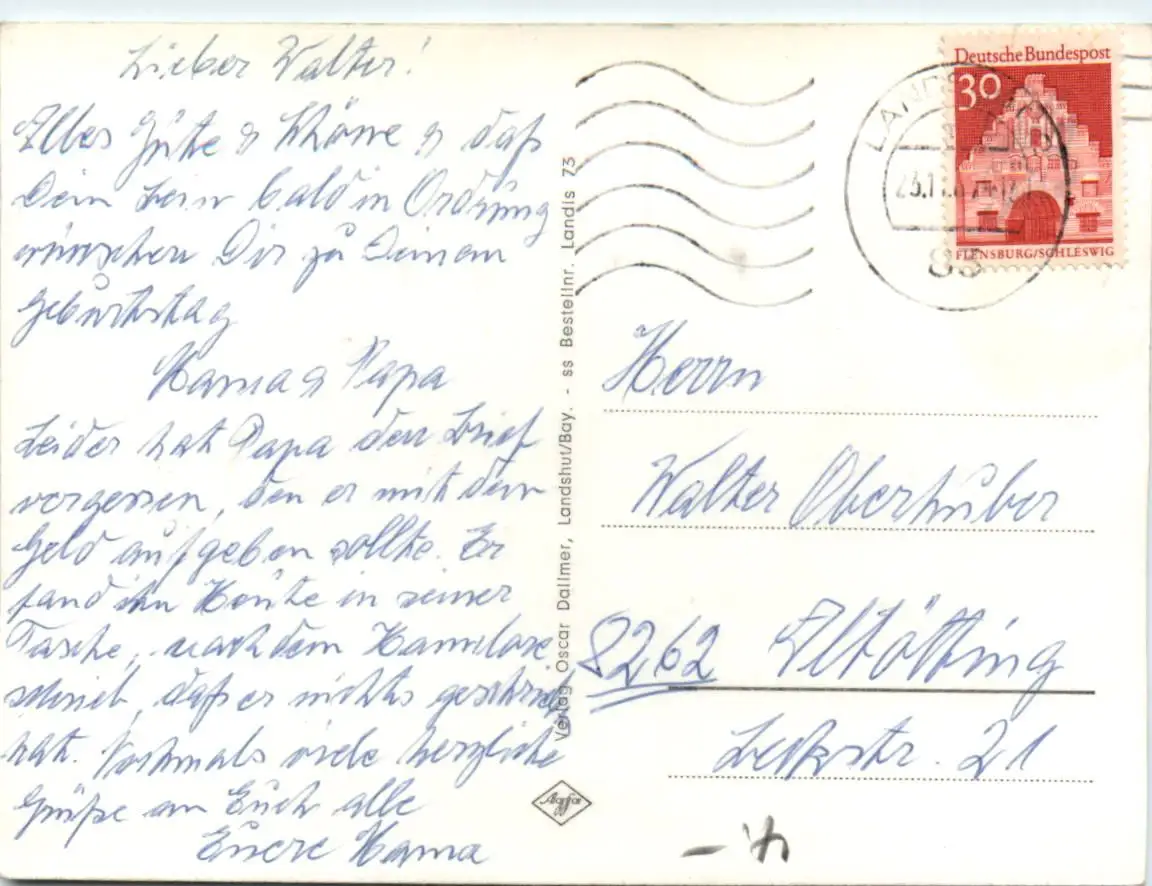 Lieber Walter!
Alles Gute & Schöne & daß
Dein Bein bald in Ordnung
wünschen Dir zu Deinem
Geburtstag
Mama & Papa
Leider hat Papa den Brief
vergessen, den er mit dem
Geld aufgeben sollte. Er
fand ihn Heute in seiner
Tasche, nachdem
schrieb, daß er nichts geschrieb
hat. Nochmals viele herzliche
Grüße an Euch alle
Euere Mama
Verlag Oscar Dallmer, Landshut/Bay. - ss Bestellnr. Landis 73
Agfa
Deutsche Bundespost
30
FLENSBURG/SCHLESWIG
LANDSHUT
83
Herrn
Walter Oberhuber
8262 Altötting
21